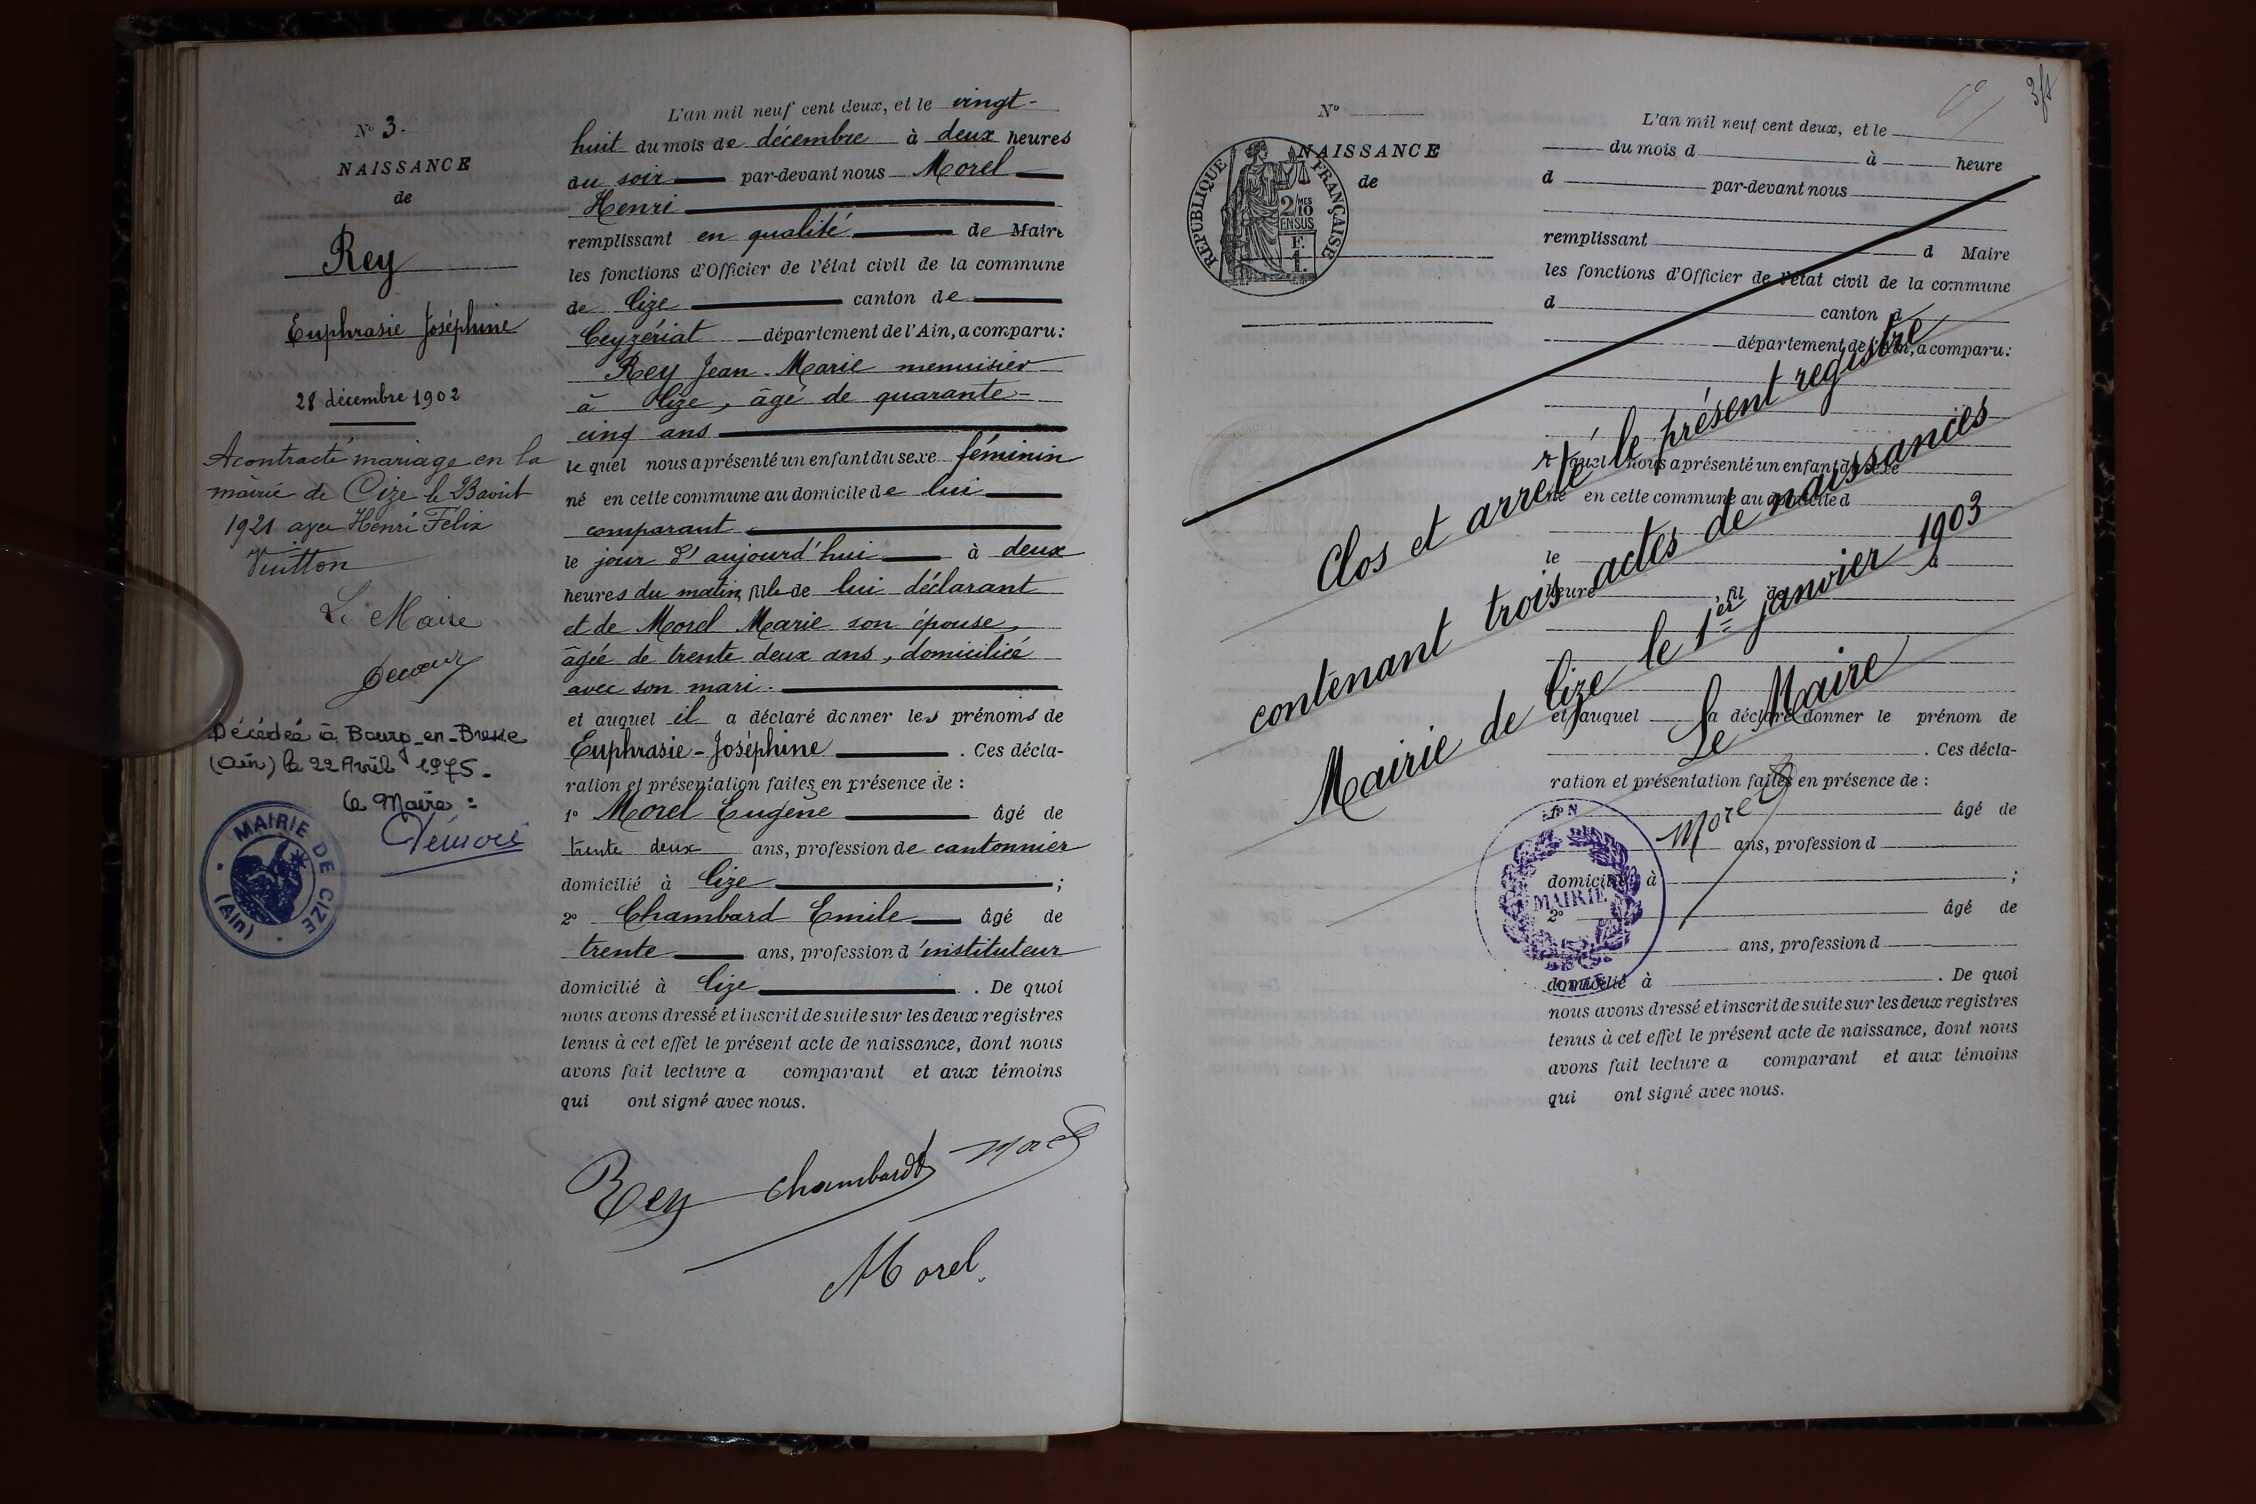 N° 3.
NAISSANCE
de
Rey
Euphrasie Joséphine
28 décembre 1902
A contracté mariage en la
mairie de Cize le 13 août
1921 avec Henri Félix
Vuitton
Le Maire
Décédée à Bourg-en-Bresse
(Ain) le 22 Avril 1975.
Le Maire :
MAIRIE DE CIZE
(Ain)
L'an mil neuf cent deux, et le vingt-
huit du mois de décembre à deux heures
du soir par-devant nous Morel
Henri
remplissant en qualité de Maire
les fonctions d'Officier de l'état civil de la commune
de Cize canton de
Ceyzériat département de l'Ain, a comparu :
Rey Jean-Marie menuisier
à Cize, âgé de quarante-
cinq ans
lequel nous a présenté un enfant du sexe féminin
né en cette commune au domicile de lui
comparant
le jour d'aujourd'hui à deux
heures du matin, fille de lui déclarant
et de Morel Marie son épouse,
âgée de trente deux ans, domiciliée
avec son mari.
et auquel il a déclaré donner les prénoms de
Euphrasie-Joséphine . Ces décla-
ration et présentation faites en présence de :
1° Morel Eugène âgé de
trente deux ans, profession de cantonnier
domicilié à Cize ;
2° Chambard Emile âgé de
trente ans, profession d'instituteur
domicilié à Cize . De quoi
nous avons dressé et inscrit de suite sur les deux registres
tenus à cet effet le présent acte de naissance, dont nous
avons fait lecture a comparant et aux témoins
qui ont signé avec nous.
Rey Chambard Morel
Morel
N°
NAISSANCE
de
RÉPUBLIQUE FRANÇAISE
2/10 MES
EN SUS
F.
1.
L'an mil neuf cent deux, et le
du mois d à heure
d par-devant nous
remplissant d Maire
les fonctions d'Officier de l'état civil de la commune
d canton d
département de l'Ain, a comparu :
lequel nous a présenté un enfant du sexe
né en cette commune au domicile d
le à
heure , fil de
et auquel a déclaré donner le prénom de
. Ces décla-
ration et présentation faites en présence de :
1° âgé de
ans, profession d
domicilié à ;
2° âgé de
ans, profession d
domicilié à . De quoi
nous avons dressé et inscrit de suite sur les deux registres
tenus à cet effet le présent acte de naissance, dont nous
avons fait lecture a comparant et aux témoins
qui ont signé avec nous.
Clos et arreté le présent registre
contenant trois actes de naissances
Mairie de Cize le 1er janvier 1903
Le Maire
Morel
MAIRIE